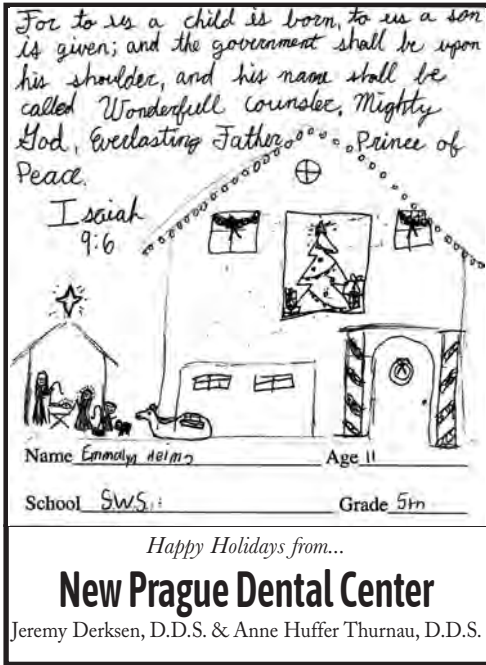 For to us a child is born, to us a son
is given; and the government shall be upon
his shoulder, and his name shall be
called Wonderfull counsler, Mighty
God, Everlasting Father, Prince of
Peace.
Isaiah
9:6
Name Emmalyn Helms Age 11
School S.W.S. Grade 5th
Happy Holidays from...
New Prague Dental Center
Jeremy Derksen, D.D.S. & Anne Huffer Thurnau, D.D.S.